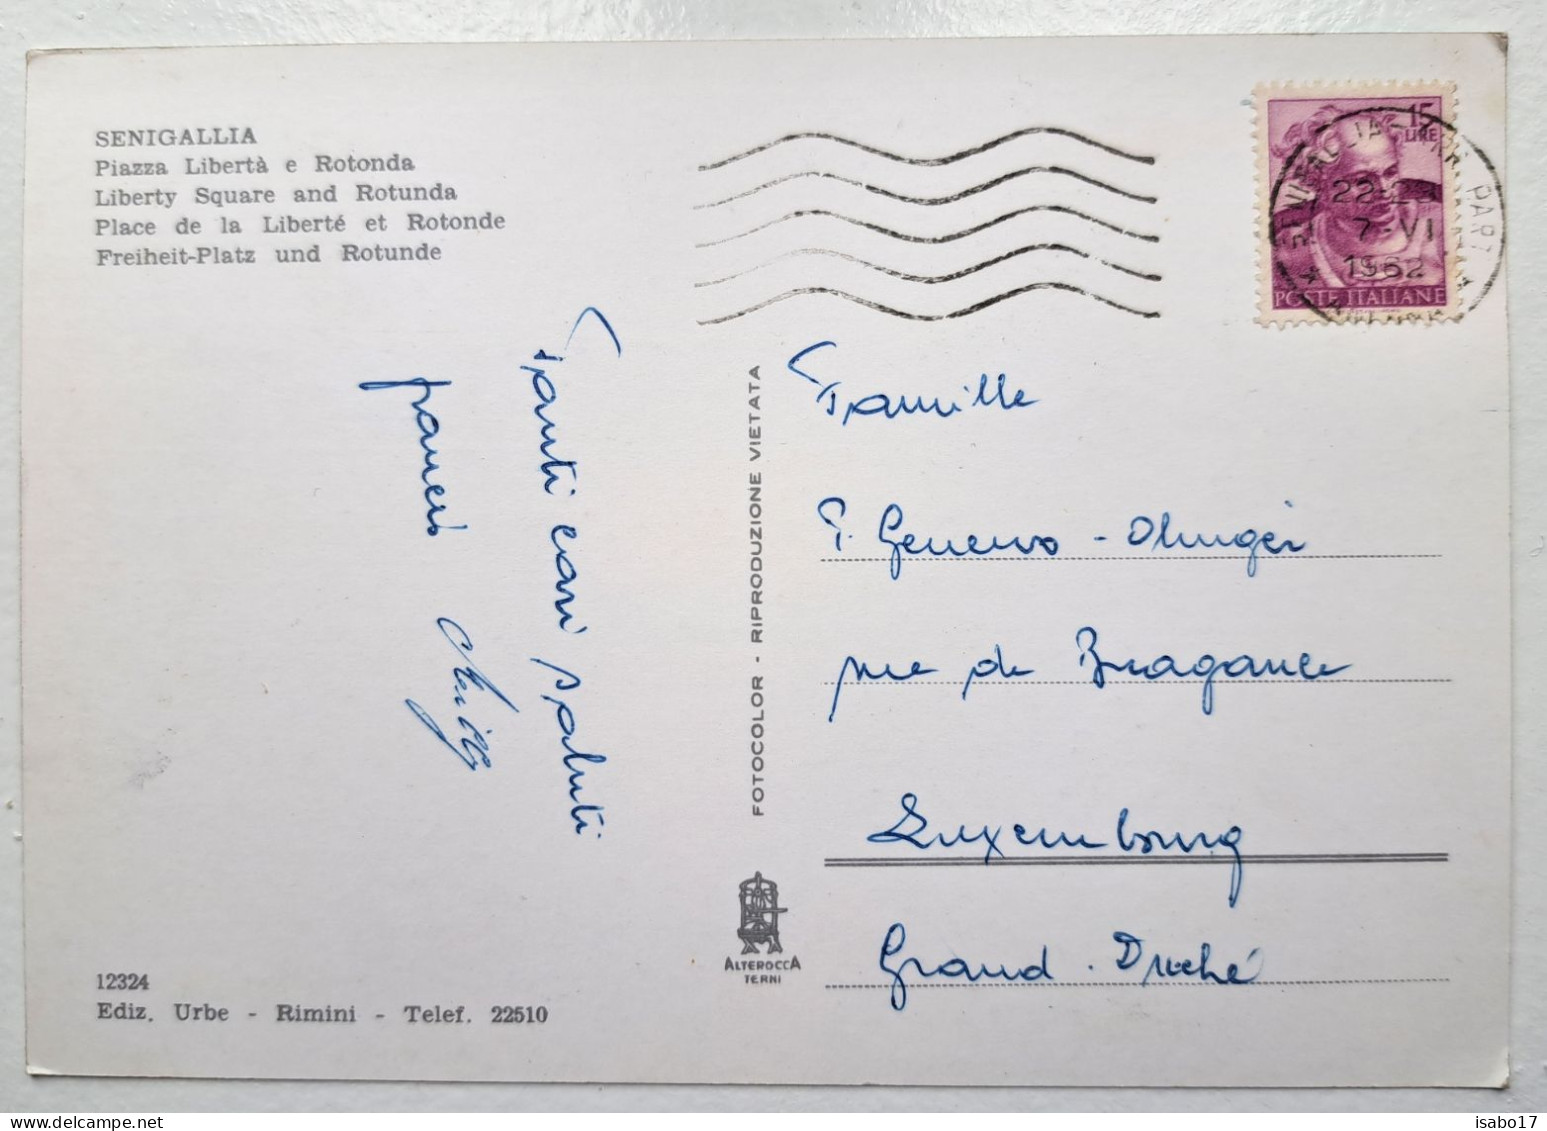 SENIGALLIA
Piazza Libertà e Rotonda
Liberty Square and Rotunda
Place de la Liberté et Rotonde
Freiheit-Platz und Rotunde
Tanti cari saluti
12324
Ediz. Urbe - Rimini - Telef. 22510
FOTOCOLOR - RIPRODUZIONE VIETATA
ALTEROCCA
TERNI
15
LIRE
POSTE ITALIANE
22-23
7-VI
1962
Famille
rue de Bragance
Luxembourg
Grand-Duché
isabo17